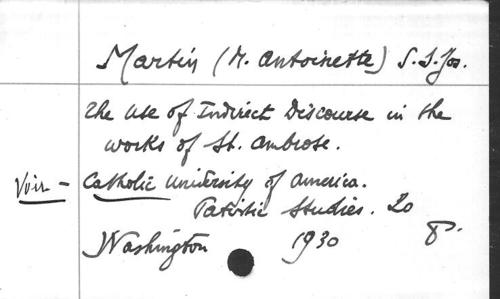 Martin (M. Antoinette) S. S. Jos.
The Use of Indirect Discourse in the
works of St. Ambrose.
Voir - Catholic University of America.
Patristic Studies. 20
Washington 1930 8°.